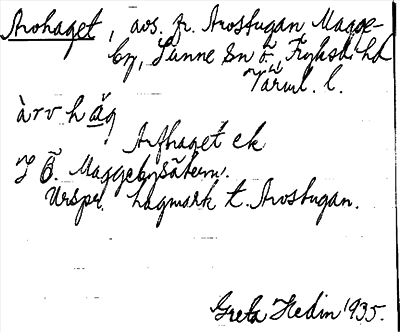 Arohaget, avs. fr. Arostugan Magge-
by, Sunne sn Ö. Fryksd. hd
Värml. l.
àrvhag
Arfhaget ek
I Ö. Maggebysätern.
Urspr. hagmark t. Arostugan.
Greta Hedin 1935.